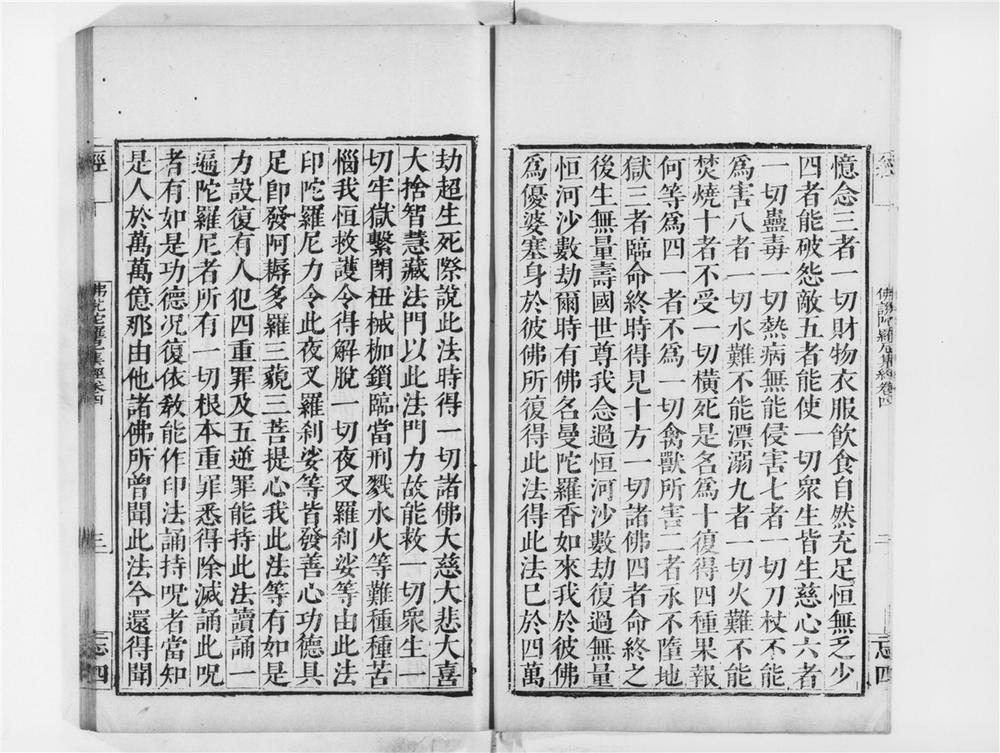 憶念三者一切財物衣服飲食自然充足恒無乏少
四者能破怨敵五者能使一切衆生皆生慈心六者
一切蠱毒一切熱病無能侵害七者一切刀杖不能
爲害八者一切水難不能漂溺九者一切火難不能
焚燒十者不受一切橫死是名爲十復得四種果報
何等爲四一者不爲一切禽獸所害二者永不墮地
獄三者臨命終時得見十方一切諸佛四者命終之
後生無量壽國世尊我念過恒河沙數劫復過無量
恒河沙數劫爾時有佛名曼陀羅香如來我於彼佛
爲優婆塞身於彼佛所復得此法得此法已於四萬
佛說陀羅尼集經卷四
二
忘四
劫超生死際說此法時得一切諸佛大慈大悲大喜
大捨智慧藏法門以此法門力故能救一切衆生一
切牢獄繫閉杻械枷鎖臨當刑戮水火等難種種苦
惱我恒救護令得解脫一切夜叉羅刹娑等由此法
印陀羅尼力令此夜叉羅刹娑等皆發善心功德具
足卽發阿耨多羅三藐三菩提心我此法等有如是
力設復有人犯四重罪及五逆罪能持此法讀誦一
遍陀羅尼者所有一切根本重罪悉得除滅誦此呪
者有如是功德况復依教能作印法誦持呪者當知
是人於萬萬億那由他諸佛所曾聞此法今還得聞
經
佛說陀羅尼集經卷四
三
忘四